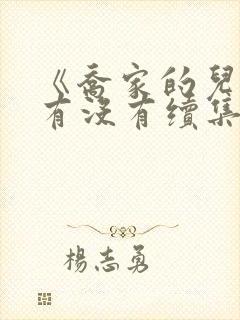 《喬家的兒
有沒有續集
楊志勇